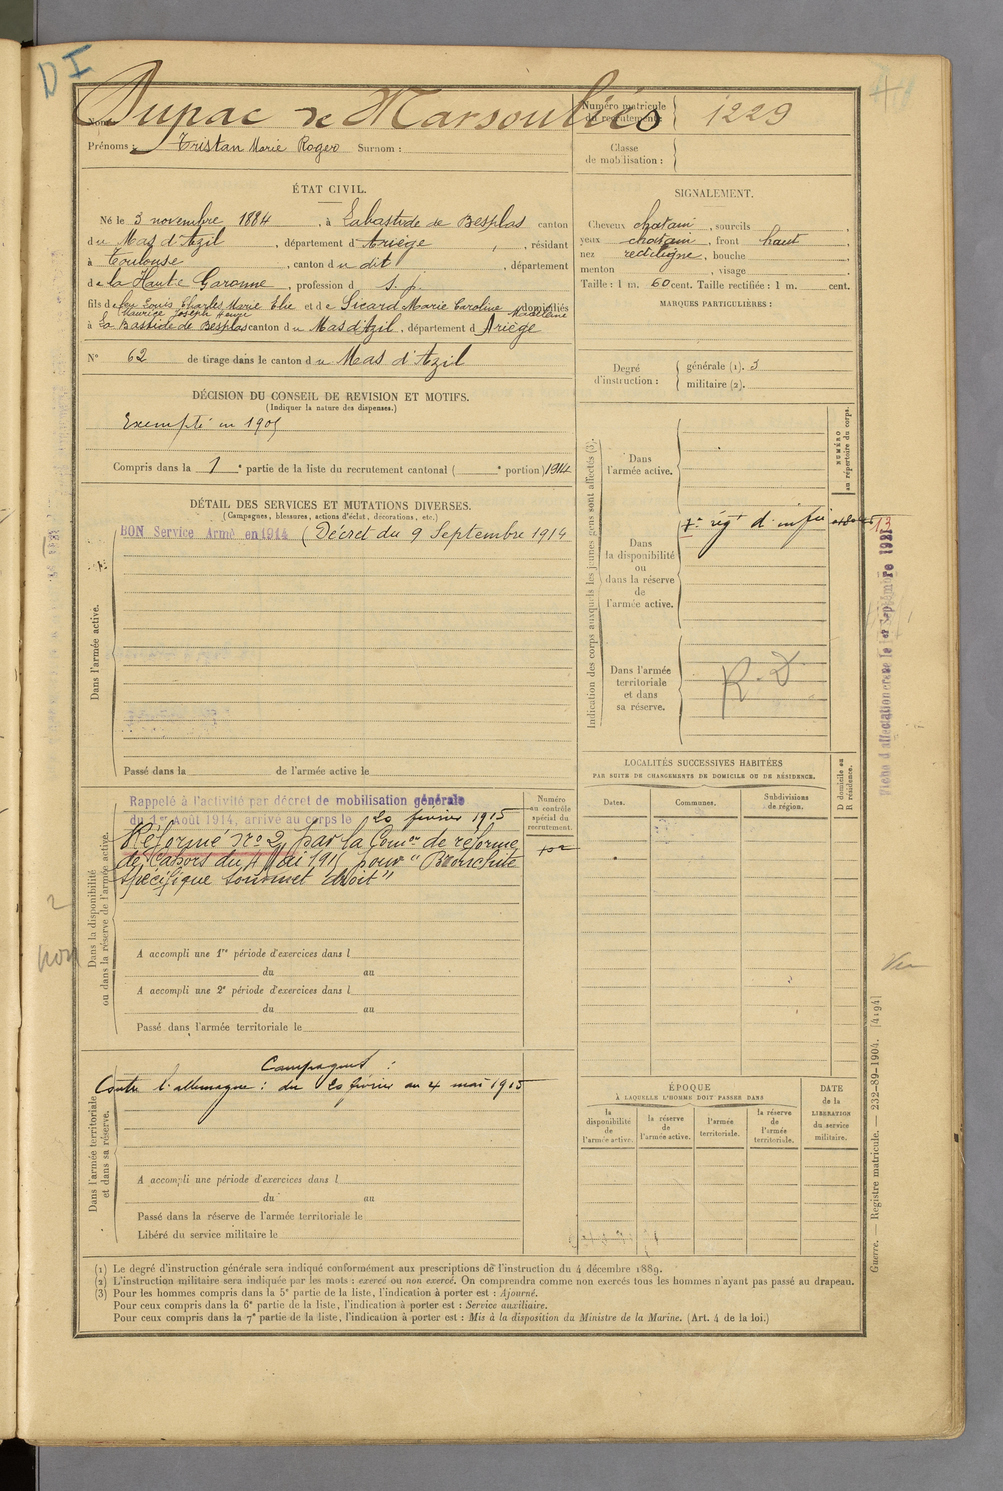 D I
Nom : Dupac de Marsouliés
Prénoms : Tristan Marie Roger Surnom :
Numéro matricule du recrutement : 1229
Classe de mobilisation :
ÉTAT CIVIL.
Né le 3 novembre 1884, à Labastide de Besplas canton
du Mas d'Azil, département d'Ariège, résidant
à Toulouse, canton du dit, département
de la Haute Garonne, profession d s. p.
fils de feu Louis Charles Marie Elie et de Sicard Marie Caroline domiciliés
Maurice Joseph Henri Madeleine
à La Bastide de Besplas canton du Mas d'Azil, département d Ariège
N° 62 de tirage dans le canton du Mas d'Azil
SIGNALEMENT.
Cheveux chatain, sourcils
yeux chatain, front haut
nez rectiligne, bouche
menton , visage
Taille : 1 m. 60 cent. Taille rectifiée : 1 m. cent.
MARQUES PARTICULIÈRES :
Degré d'instruction : générale (1). 3
militaire (2).
DÉCISION DU CONSEIL DE REVISION ET MOTIFS.
(Indiquer la nature des dispenses.)
Exempté en 1905
Compris dans la 1e partie de la liste du recrutement cantonal ( e portion) 1914
DÉTAIL DES SERVICES ET MUTATIONS DIVERSES.
(Campagnes, blessures, actions d'éclat, décorations, etc.)
BON Service Armé en 1914 (Décret du 9 Septembre 1914
Dans l'armée active.
Passé dans la de l'armée active le
Indication des corps auxquels les jeunes gens sont affectés (3).
NUMÉRO au répertoire du corps.
Dans l'armée active.
Dans la disponibilité ou dans la réserve de l'armée active.
7e régt d'infie
13
Dans l'armée territoriale et dans sa réserve.
R. D
1er Septembre 1921
LOCALITÉS SUCCESSIVES HABITÉES
PAR SUITE DE CHANGEMENTS DE DOMICILE OU DE RÉSIDENCE.
Dates. Communes. Subdivisions de région. D domicile ou R résidence.
Dans la disponibilité ou dans la réserve de l'armée active.
Numéro au contrôle spécial du recrutement.
Rappelé à l'activité par décret de mobilisation générale
du 1er Août 1914, arrivé au corps le 20 février 1915
Réformé no 2, par la Comon de réforme
de Cahors du 4 Mai 1915 pour "Bronchite
spécifique sommet droit"
2
non
A accompli une 1re période d'exercices dans l
du au
A accompli une 2e période d'exercices dans l
du au
Passé dans l'armée territoriale le
Dans l'armée territoriale et dans sa réserve.
Campagnes :
Contre l'allemagne : du 20 février au 4 mai 1915
A accompli une période d'exercices dans l
du au
Passé dans la réserve de l'armée territoriale le
Libéré du service militaire le
ÉPOQUE
À LAQUELLE L'HOMME DOIT PASSER DANS
la disponibilité de l'armée active. la réserve de l'armée active. l'armée territoriale. la réserve de l'armée territoriale.
DATE de la LIBÉRATION du service militaire.
Guerre. — Registre matricule. — 232-89-1904. [4194]
(1) Le degré d'instruction générale sera indiqué conformément aux prescriptions de l'instruction du 4 décembre 1889.
(2) L'instruction militaire sera indiquée par les mots : exercé ou non exercé. On comprendra comme non exercés tous les hommes n'ayant pas passé au drapeau.
(3) Pour les hommes compris dans la 5e partie de la liste, l'indication à porter est : Ajourné.
Pour ceux compris dans la 6e partie de la liste, l'indication à porter est : Service auxiliaire.
Pour ceux compris dans la 7e partie de la liste, l'indication à porter est : Mis à la disposition du Ministre de la Marine. (Art. 4 de la loi.)